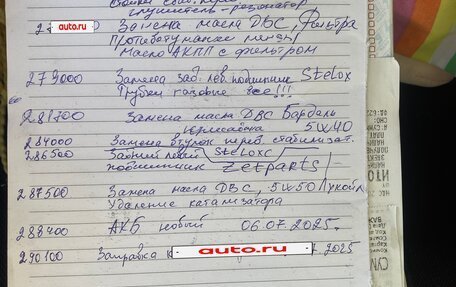 глушитель - резонатор
auto.ru Замена масла ДВС, Фильтра
Противотуманые линзы
Масло АКПП с фильтром
279000 Замена зад. лев. подшипник Stelox
Трубки газовые все!!!
281700 Замена масла ДВС Бардаль
Юрисовка 5W40
284000 Замена втулок перед. стабилизат.
286500 Задний левый /Steloxc/
подшипник Zetparts/-
287500 Замена масла ДВС, 5W50 Лукойл
Удаление катализатора
288400 АКБ новый 06.07.2025.
290100 Заправка auto.ru 2025